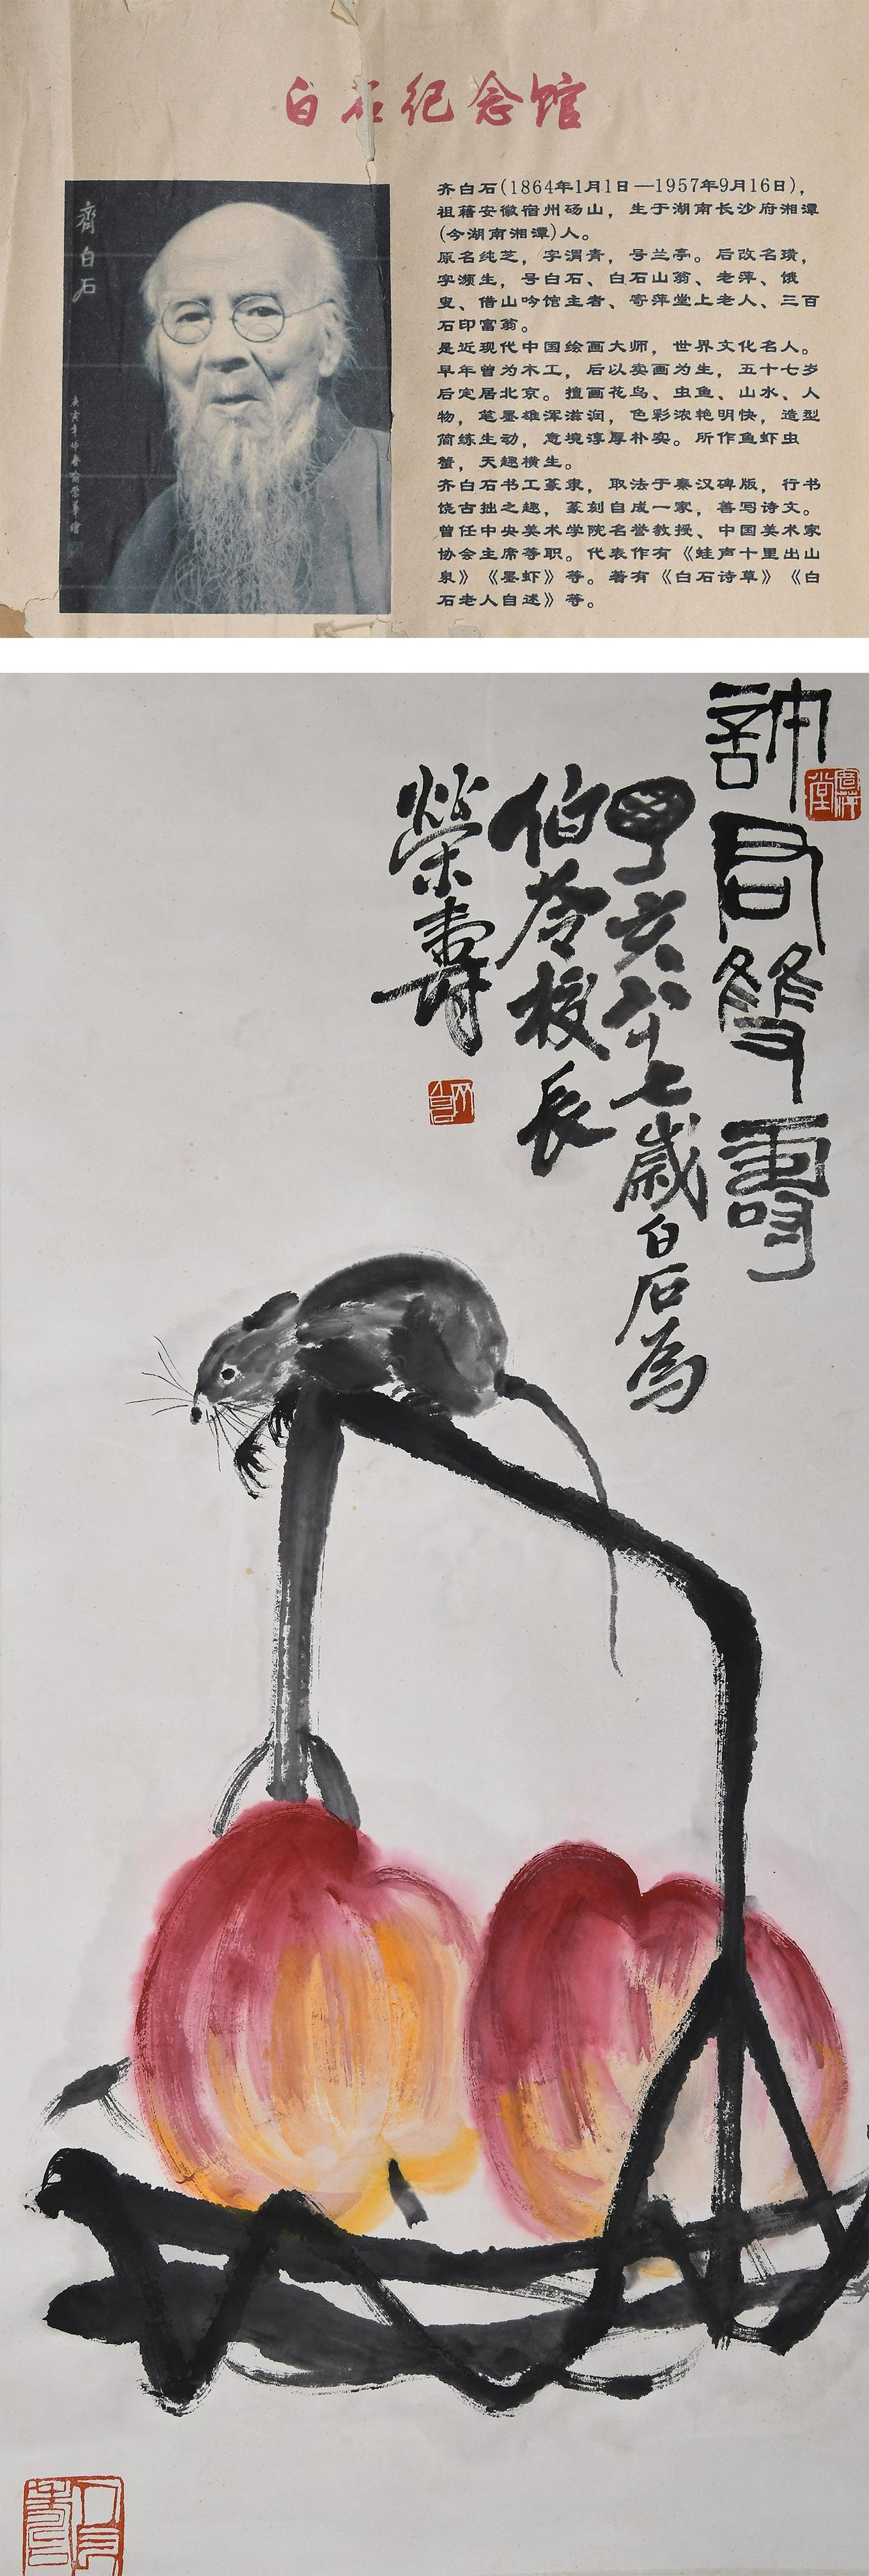 白石纪念馆
齊白石
齐白石(1864年1月1日—1957年9月16日),
祖籍安徽宿州砀山，生于湖南长沙府湘潭
(今湖南湘潭)人。
原名纯芝，字渭青，号兰亭。后改名璜，
字濒生，号白石、白石山翁、老萍、饿
叟、借山吟馆主者、寄萍堂上老人、三百
石印富翁。
是近现代中国绘画大师，世界文化名人。
早年曾为木工，后以卖画为生，五十七岁
后定居北京。擅画花鸟、虫鱼、山水、人
物，笔墨雄浑滋润，色彩浓艳明快，造型
简练生动，意境淳厚朴实。所作鱼虾虫
蟹，天趣横生。
齐白石书工篆隶，取法于秦汉碑版，行书
饶古拙之趣，篆刻自成一家，善写诗文。
曾任中央美术学院名誉教授、中国美术家
协会主席等职。代表作有《蛙声十里出山
泉》《墨虾》等。著有《白石诗草》《白
石老人自述》等。
許君雙壽
丁亥八十七歲白石為
伯苓校長
榮壽